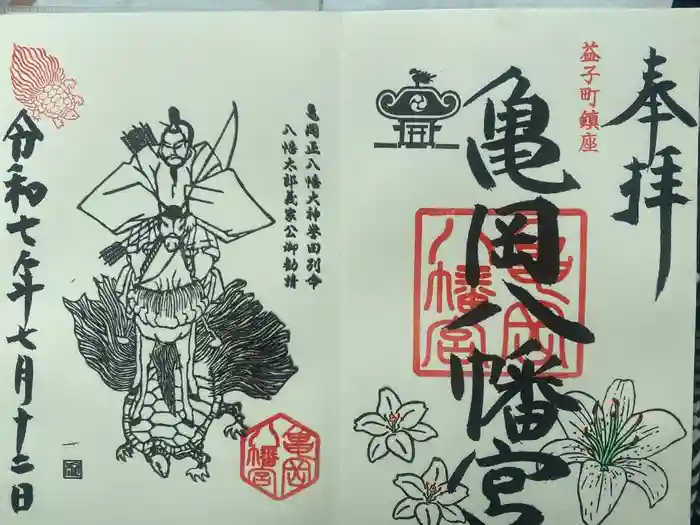 奉拝
益子町鎮座
亀岡八幡宮
亀岡
八幡宮
亀岡正八幡大神誉田別命
八幡太郎義家公御勧請
令和七年七月十二日
亀岡
八幡宮